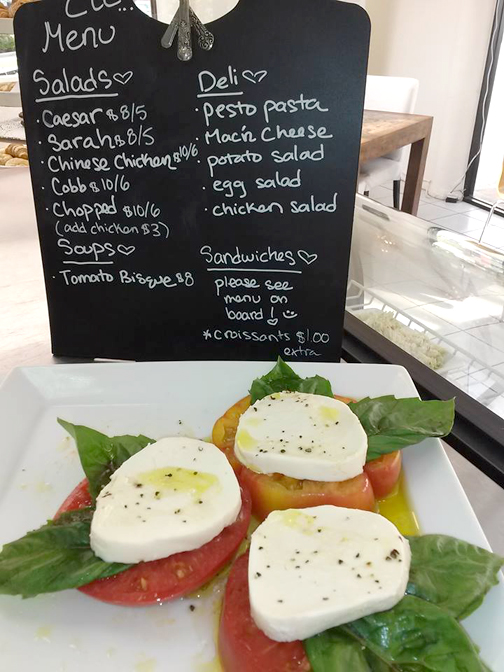 Menu
Salads♡
· Caesar $8/5
· Sarah $8/5
· Chinese Chicken $10/6
· Cobb $10/6
· Chopped $10/6
(add chicken $3)
Soups♡
· Tomato Bisque $8
Deli♡
· pesto pasta
· Mac'n Cheese
· potato salad
· egg salad
· chicken salad
Sandwiches♡
please see
menu on
board! ☺
*croissants $1.00
extra